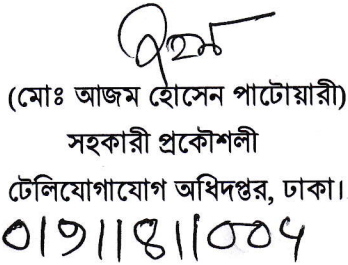 (মোঃ আজম হোসেন পাটোয়ারী)
সহকারী প্রকৌশলী
টেলিযোগাযোগ অধিদপ্তর, ঢাকা।
01911811004